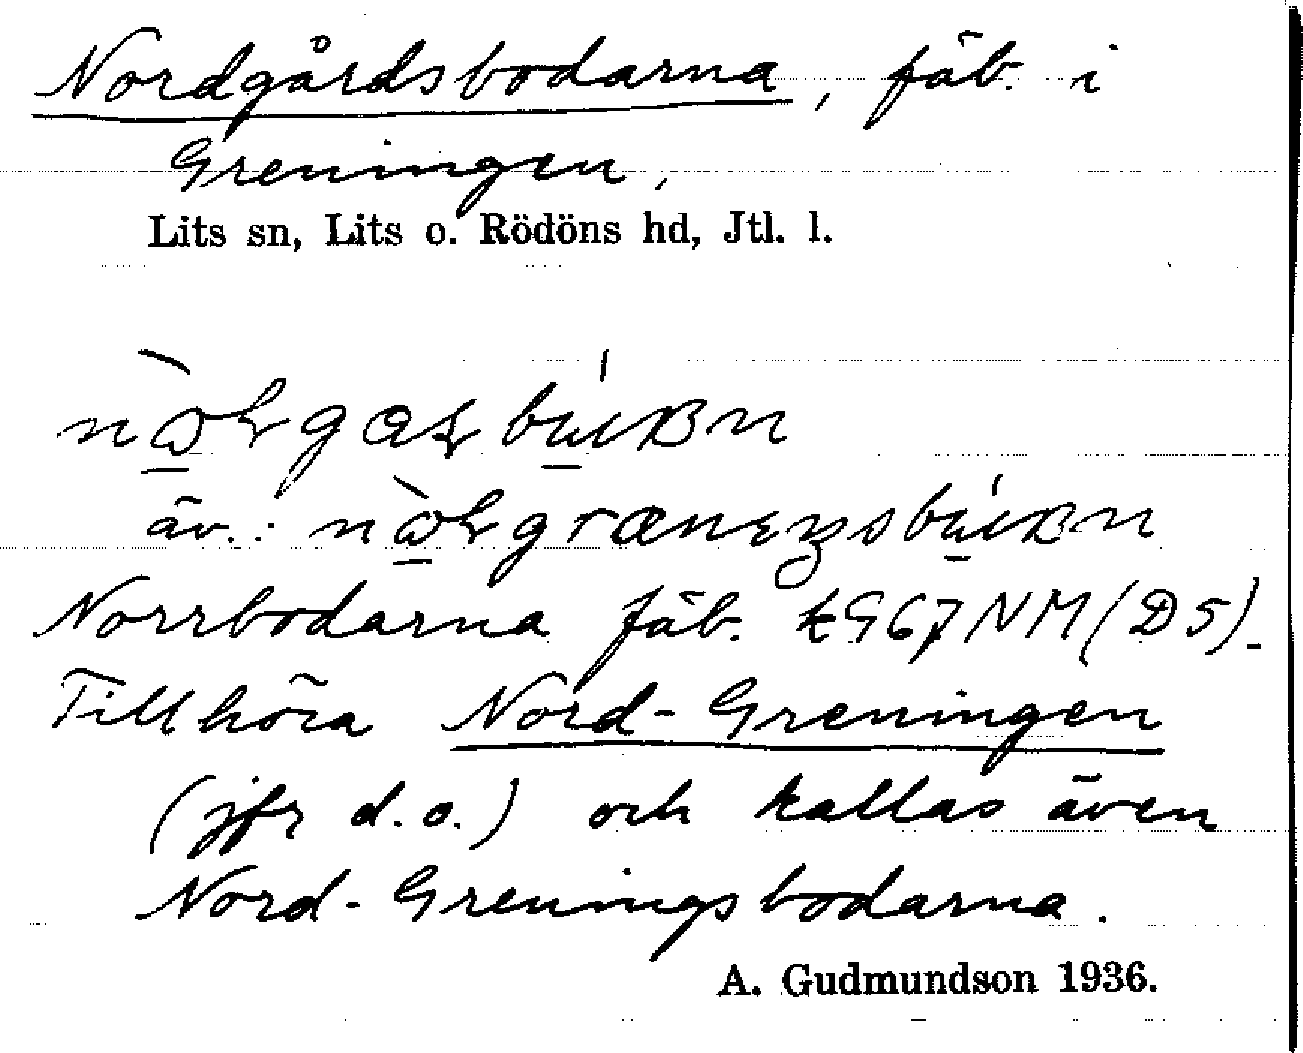 Nordgårdsbodarna, fäb. i
Greningen,
Lits sn, Lits o. Rödöns hd, Jtl. l.
äv.:
Norrbodarna fäb. k967NM(D5).
Tillhöra Nord-Greningen
(jfr d.o.) och kallas även
Nord-Greningsbodarna.
A. Gudmundson 1936.